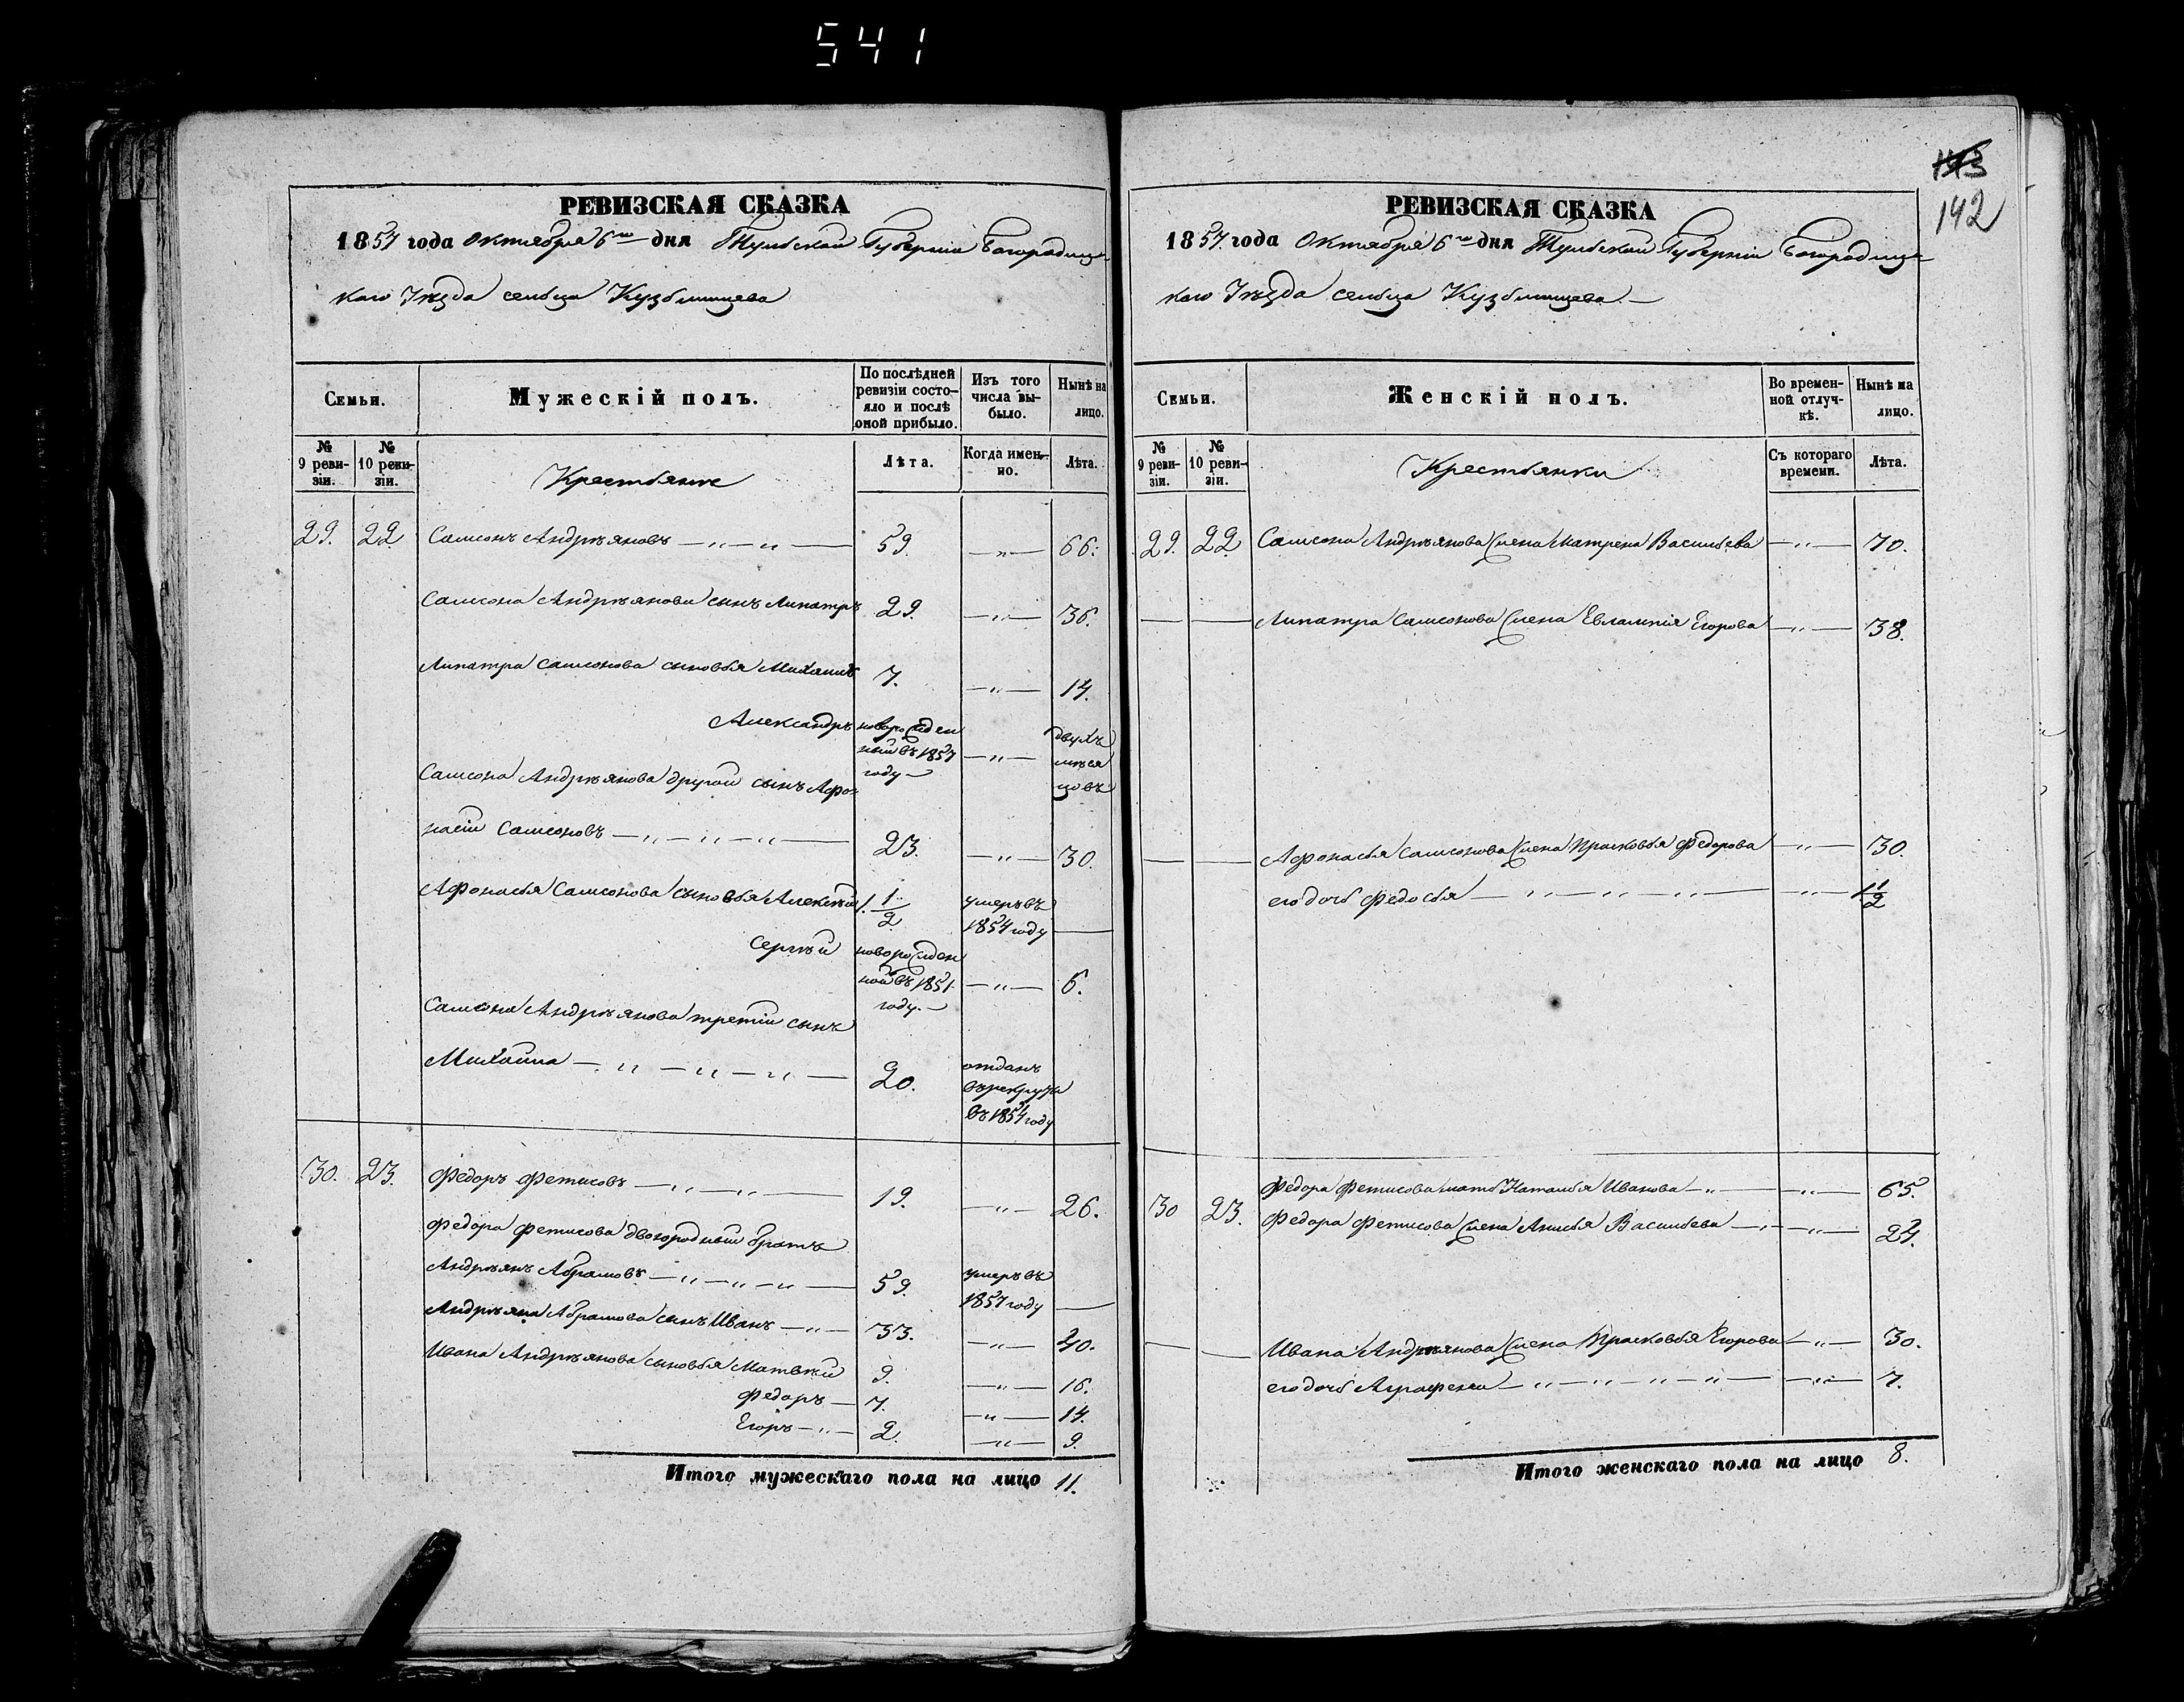 541
143
142
РЕВИЗСКАЯ СКАЗКА
1857 года Октября 6го дня Тульской Губерніи Богородиц-
каго Уѣзда сельца Кузьмищева
Семьи.
Мужескій полъ.
По послѣдней ревизіи состо-яло и послѣ оной прибыло.
Изъ того числа вы-было.
Нынѣ на лицо.
№ 9 реви-зіи.
№ 10 реви-зіи.
Крестьяне
Лѣта.
Когда имен-но.
Лѣта.
29. 22. Самсонъ Андрѣяновъ — „ — „ — 59. — „ — 66.
Самсона Андрѣянова сынъ Липатръ 29. — „ — 36.
Липатра Самсонова сыновья Михаилъ 7. — „ — 14.
Александръ новорожден ный въ 1857 году — — „ — двухъ мѣся цовъ
Самсона Андрѣянова другой сынъ Афо-
насій Самсоновъ — „ — „ — „ — 23. — „ — 30.
Афонасья Самсонова сыновья Алексѣй 1 1/2 умеръ въ 1854 году —
Сергѣй новорожден ной въ 1851 году. — — „ — 6.
Самсона Андрѣянова третій сынъ
Михаила — „ — „ — „ — 20. отданъ въ рекруты въ 1854 году
30. 23. Федоръ Фетисовъ — „ — „ — 19. — „ — 26.
Федора Фетисова двоюродный братъ
Андрѣянъ Абрамовъ — „ — „ — „ — 59. умеръ въ 1857 году —
Андрѣяна Абрамова сынъ Иванъ — „ — 33. — „ — 40.
Ивана Андрѣянова сыновья Матвѣй 9. — „ — 16.
Федоръ — 7. — „ — 14.
Егоръ — „ — 2. — „ — 9.
Итого мужескаго пола на лицо 11.
РЕВИЗСКАЯ СКАЗКА
1857. года Октября 6го дня Тульской Губерніи Богородиц-
каго Уѣзда сельца Кузьмищева. —
Семьи.
Женскій полъ.
Во времен-ной отлуч-кѣ.
Нынѣ на лицо.
№ 9 реви-зіи.
№ 10 реви-зіи.
Крестьянки
Съ котораго времени.
Лѣта.
29. 22 Самсона Андрѣянова жена Матрена Васильева — „ — 70.
— — Липатра Самсонова жена Евлампія Егорова — „ — 38.
— — Афонасья Самсонова жена Прасковья Федорова — „ — 30.
его дочь Федосья — „ — „ — „ — — „ — 1 1/2
Федора Фетисова мать Наталья Иванова — „ — „ — 65.
30 23. Федора Фетисова жена Анисья Васильева — „ — „ — 24.
— — Ивана Андрѣянова жена Прасковья Егорова — „ — 30.
его дочь Аграфена — „ — „ — „ — „ — — „ — 7.
Итого женскаго пола на лицо 8.